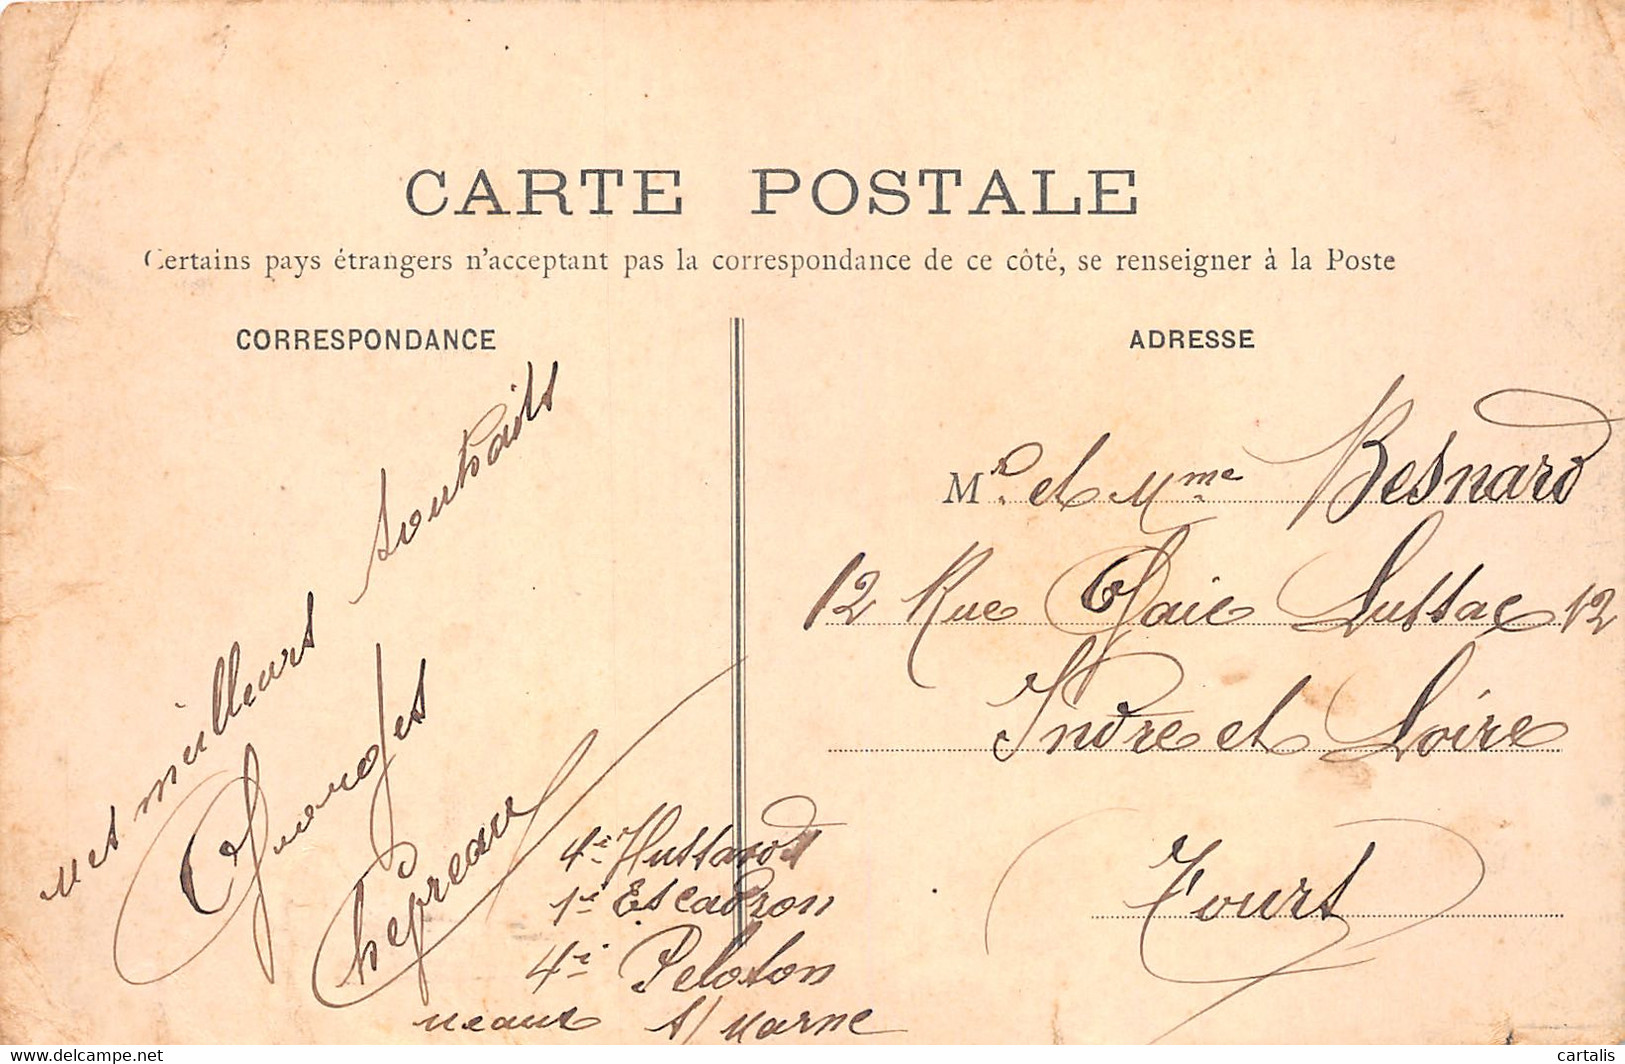 CARTE POSTALE
Certains pays étrangers n'acceptant pas la correspondance de ce côté, se renseigner à la Poste
CORRESPONDANCE
mes meilleurs souhaits
Georges
4e Hussards
1er Escadron
4e Peloton
Meaux s/ Marne
ADRESSE
Mr. et Mme Besnard
12 Rue Gaie Lussac 12
Indre et Loire
Tours
www.delcampe.net
cartalis